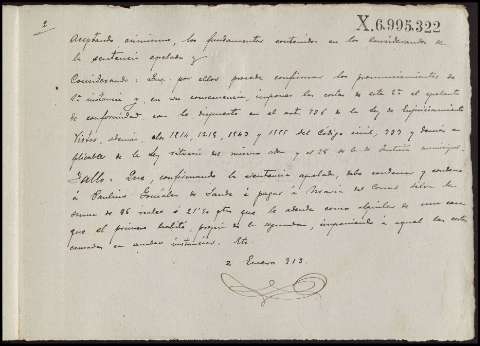 2
X.6.995.322
Aceptando asimismo, los fundamentos contenidos en los Considerandos de
la sentencia apelada y
Considerando: Que por ellos procede confirmar los pronunciamientos de
1ª instancia y, en su consecuencia, imponer las costas de esta 2ª al apelante
de conformidad con lo dispuesto en el art. 736 de la ley de Enjuiciamiento
Civil, además, 1214, y 1555 del Código civil, y demás
aplicable de la ley rituaria del mismo orden y el 28 de la de Justicia municipal.
Fallo: Que, confirmando la sentencia apelada, debo condenar y condeno
á Paulino González de á pagar á María del la
suma de 86 reales ó 21'50 ptas que le adeuda como alquiler de una casa
que el primero habitó, propia de la segunda, imponiendo á aquel las costas
causadas en ambas instancias. Etc
2 Enero 913.